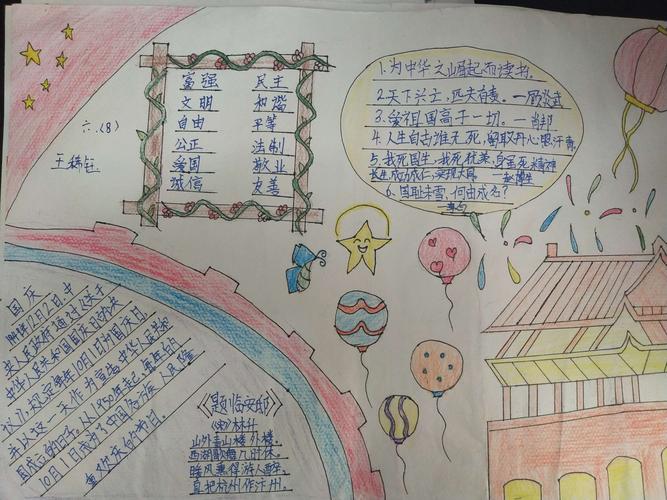 六.(8)
富强 民主
文明 和谐
自由 平等
公正 法制
爱国 敬业
诚信 友善
1.为中华之崛起而读书。
2.天下兴亡,匹夫有责。—顾炎武
3.爱祖国高于一切。—肖邦
4.人生自古谁无死,留取丹心照汗青
5.我死国生,我死犹荣,身虽死精神
长生,成功成仁,实现大同 —赵博生
6.国耻未雪,何由成名?
李白
国庆
1949年12月2日,中
央人民政府通过《关于
中华人民共和国国庆日的决
议》,规定每年10月1日为国庆日,
并以这一天作为宣告中华人民共和
国成立的日子。从1950年起,每年的
10月1日成为了中国各族人民隆
重欢庆的节日。
《题临安邸》
《宋》林升
山外青山楼外楼,
西湖歌舞几时休。
暖风熏得游人醉,
直把杭州作汴州。